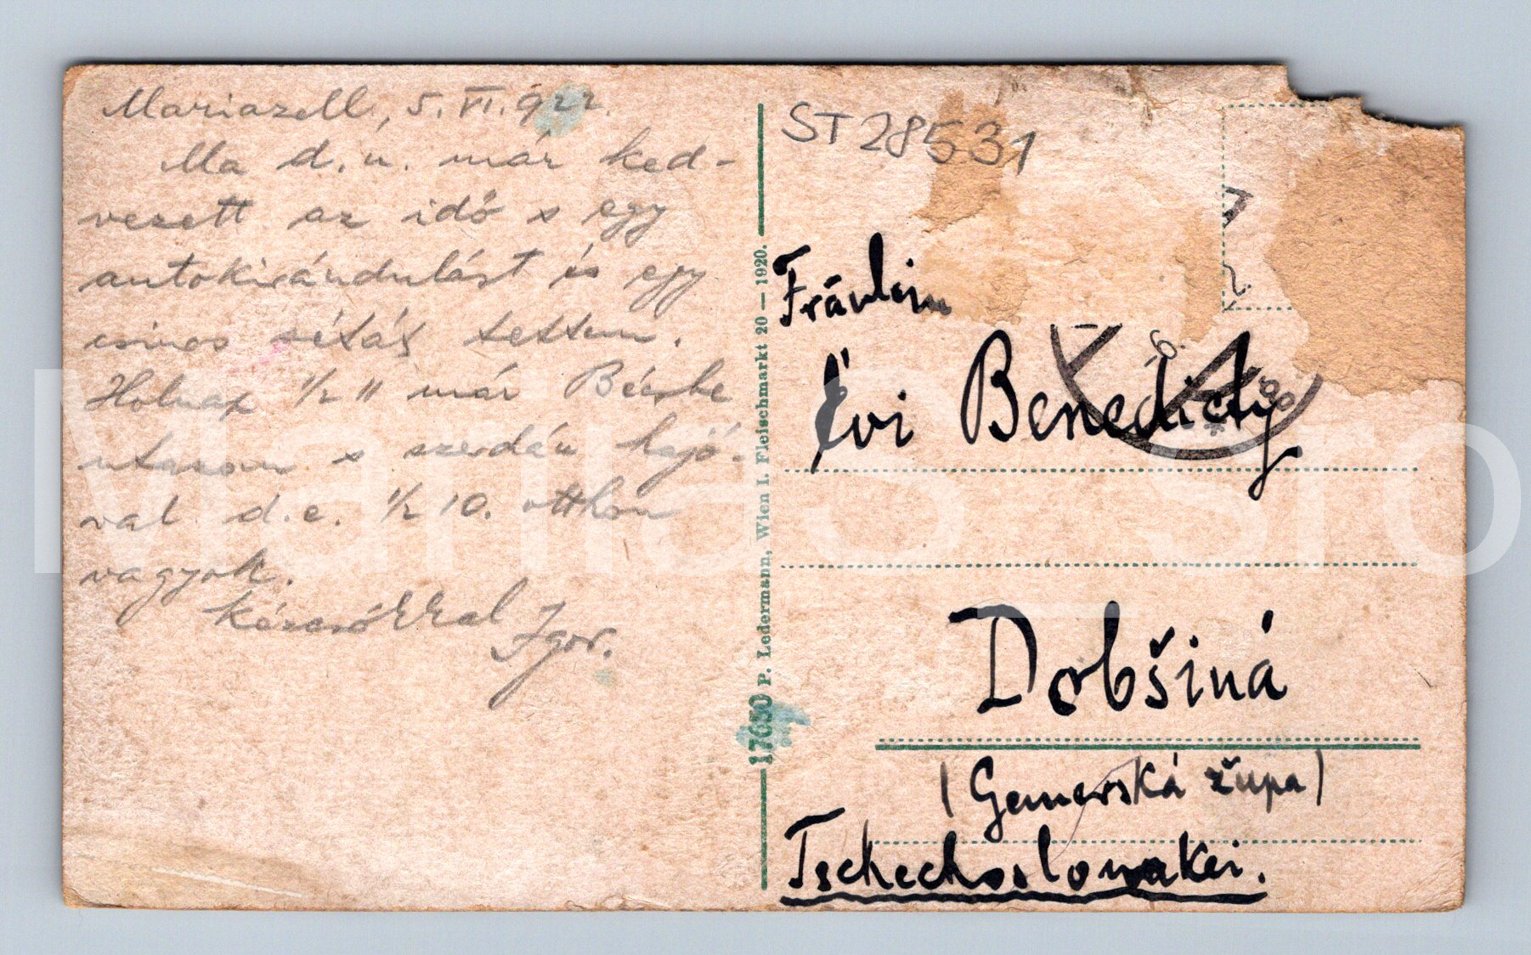 Mariazell, 5. VI. 922.
Ma d. u. már ked-
vezett az idő s egy
autokirándulást és egy
csinos sétát tettem.
Holnap 1/2 11 már Bécsbe
utazom s szerdán hajó-
val d. e. 1/2 10. otthon
vagyok.
Kézcsókkal
Igor.
17630 P. Ledermann, Wien I. Fleischmarkt 20 — 1920.
ST 28531
Fräulein
Évi Benedicty
Dobšiná
(Gemerská župa)
Tschechoslowakei.
Marilas_sro